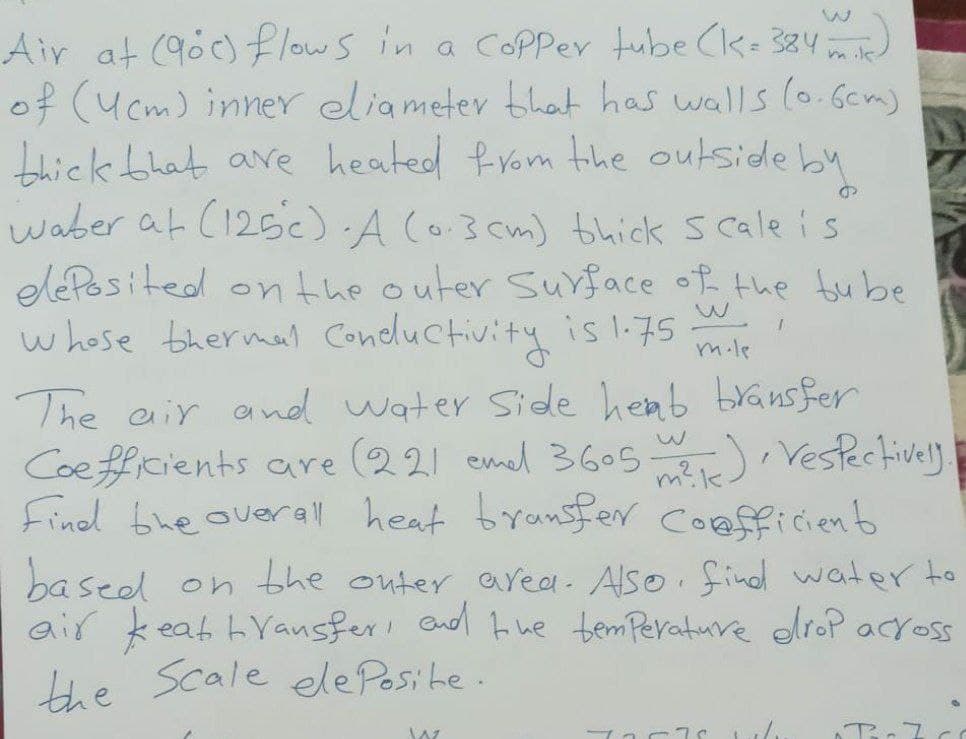 Air at (90°c) flows in a copper tube (k= 384 w/m.k)
of (4cm) inner diameter that has walls (0.6cm)
thick that are heated from the outside by
water at (125°c). A (0.3cm) thick scale is
deposited on the outer surface of the tube
whose thermal conductivity is 1.75 w/m.k,
The air and water side heat transfer
Coefficients are (221 and 3605 w/m².k), respectively.
Find the overall heat transfer coefficient
based on the outer area. Also, find water to
air heat transfer, and the temperature drop across
the scale deposite.